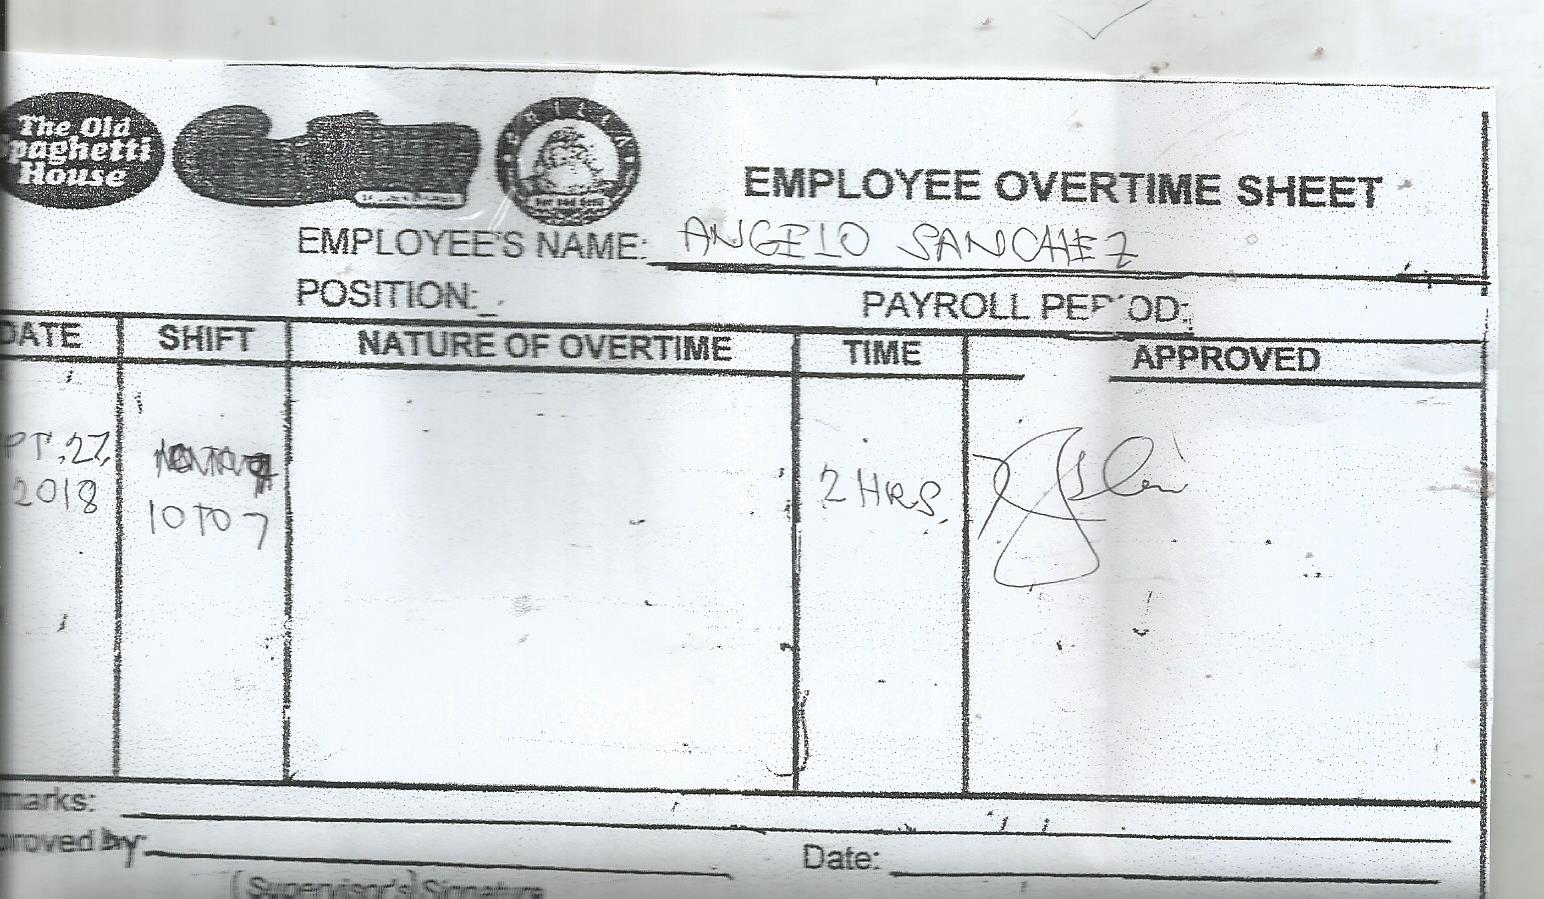 The Old
Spaghetti
House
EMPLOYEE OVERTIME SHEET
EMPLOYEE'S NAME: ANGELO SANCHEZ
POSITION:
PAYROLL PERIOD:
DATE SHIFT NATURE OF OVERTIME TIME APPROVED
PT. 27, 10 TO 7 2 HRS.
2018
marks:
proved By:
Date:
(Supervisor's) Signature